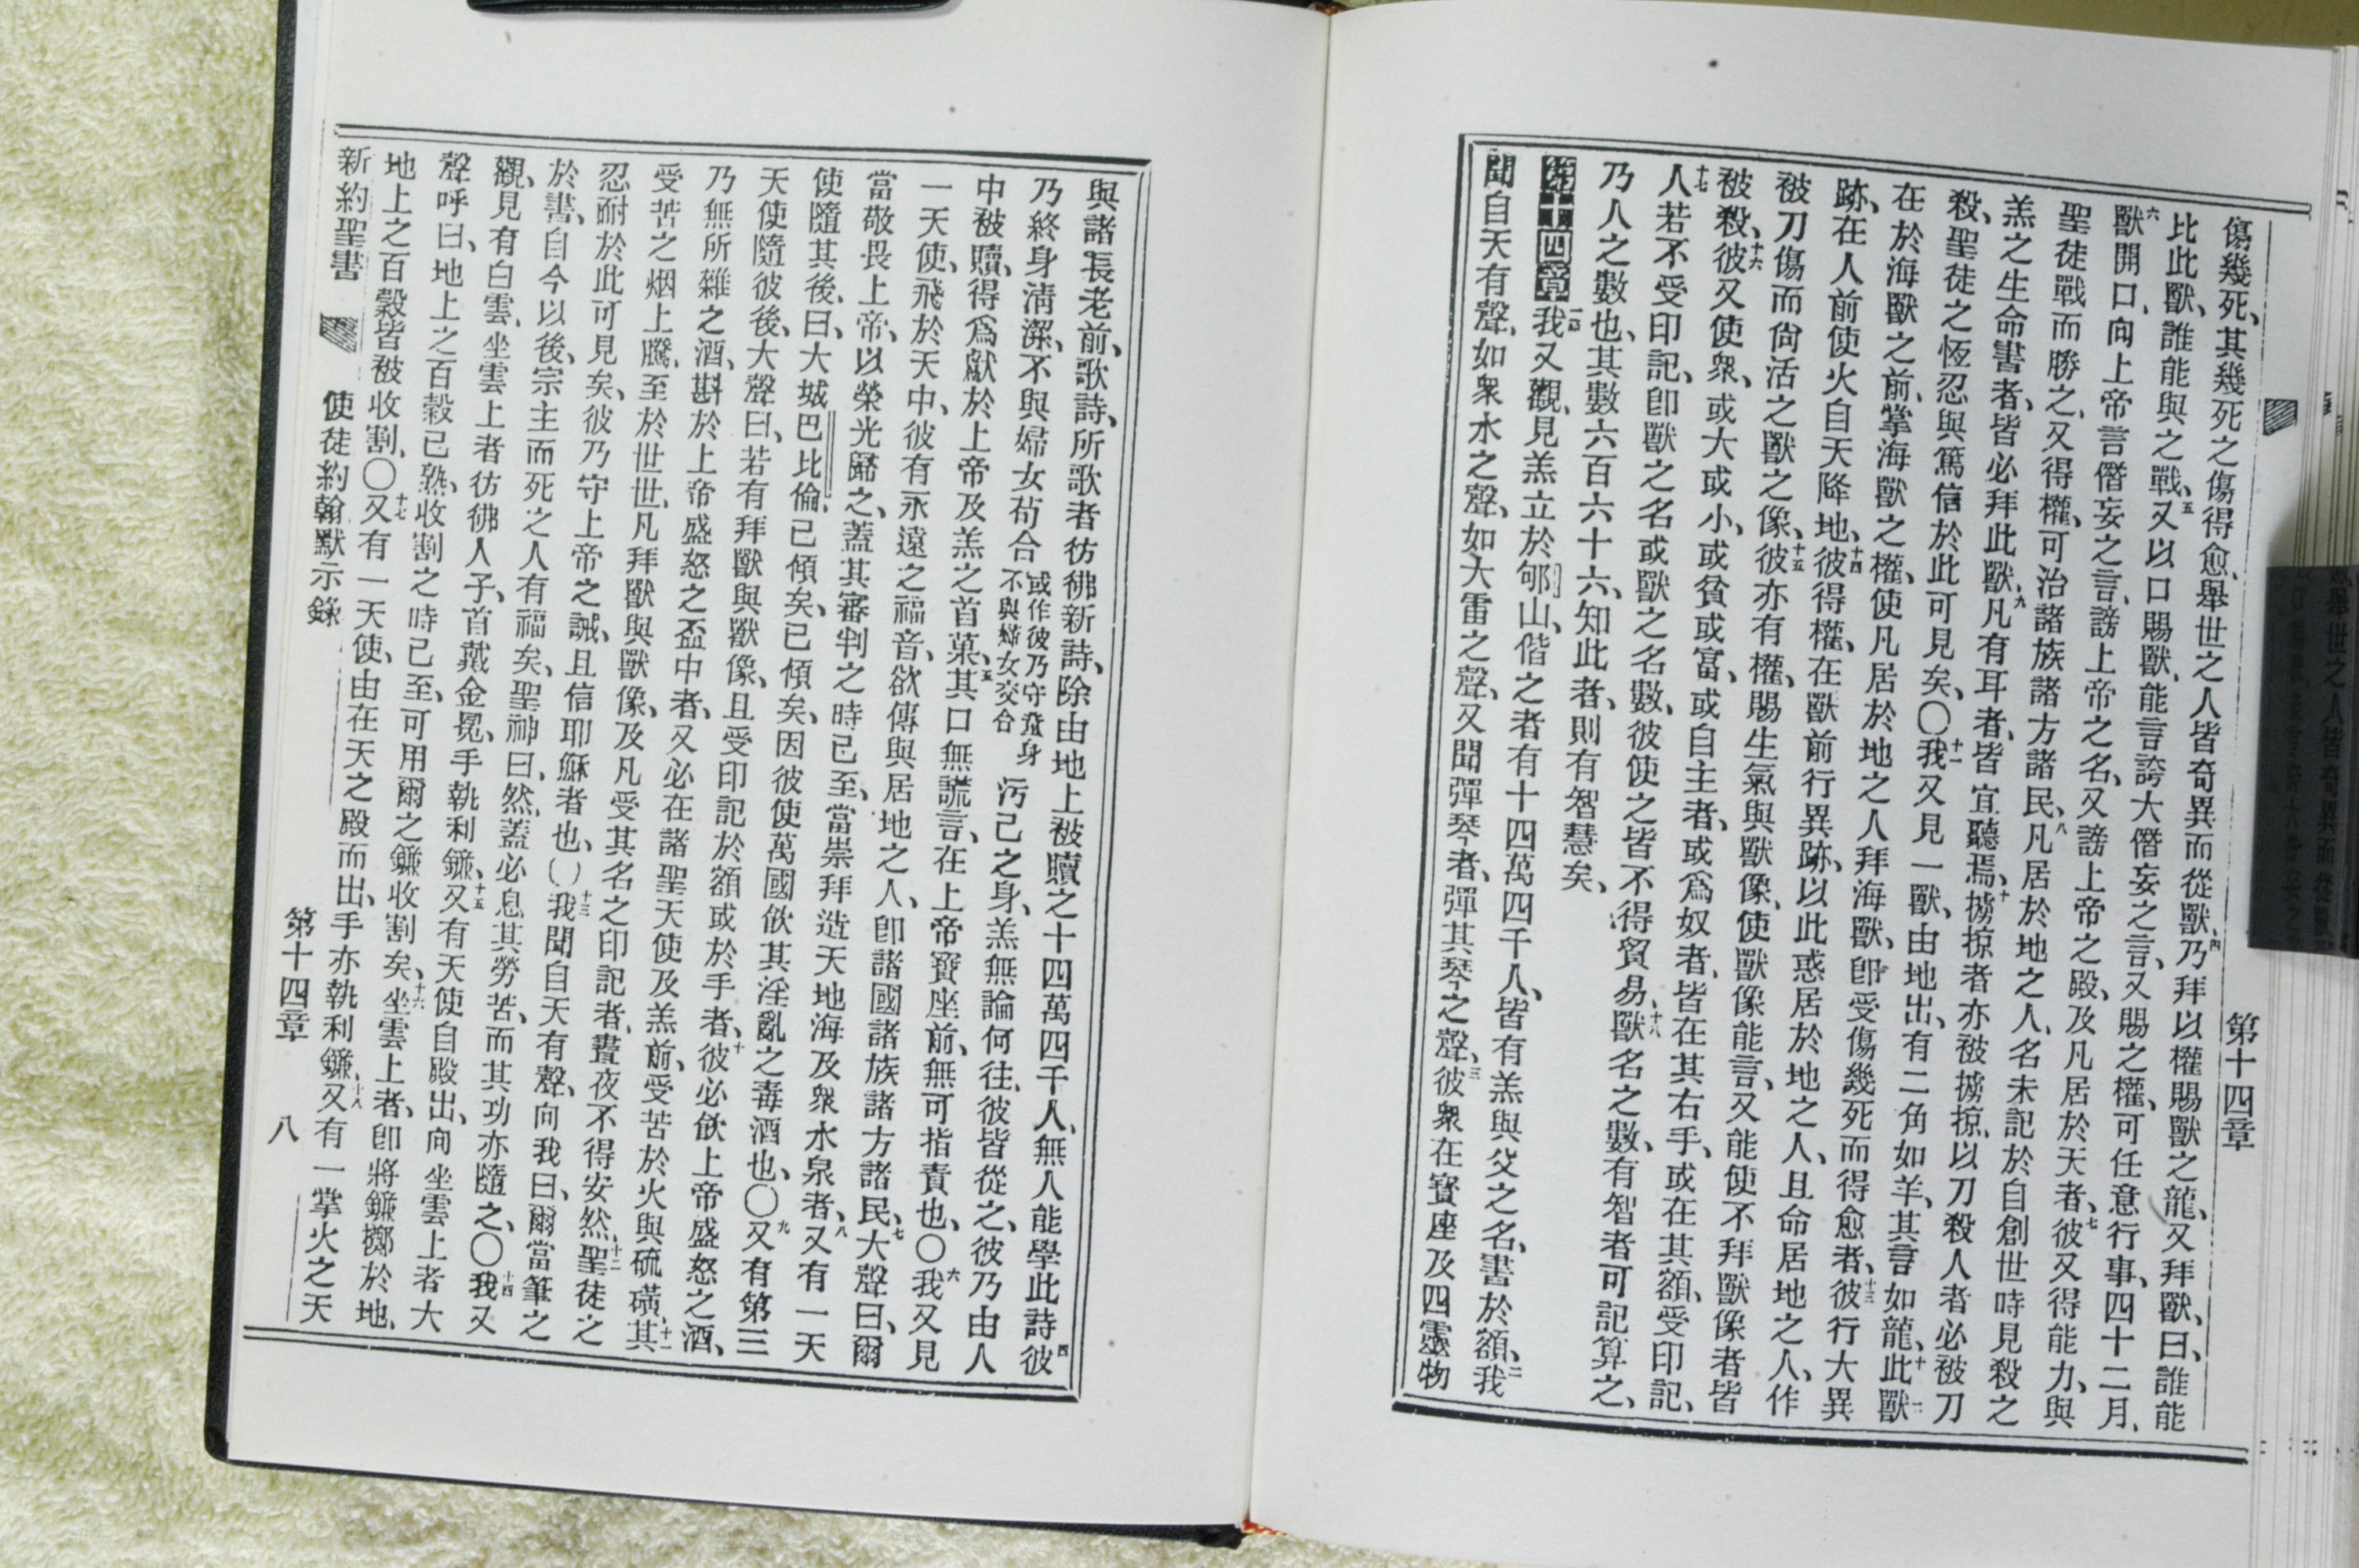 第十四章
傷幾死、其幾死之傷得愈、舉世之人皆奇異而從獸、四乃拜以權賜獸之龍、又拜獸、曰、誰能
比此獸、誰能與之戰、五又以口賜獸、能言誇大僭妄之言、又賜之權、可任意行事、四十二月、
六獸開口、向上帝言僭妄之言、謗上帝之名、又謗上帝之殿、及凡居於天者、七彼又得能力、與
聖徒戰而勝之、又得權、可治諸族諸方諸民、八凡居於地之人、名未記於自創世時見殺之
羔之生命書者、皆必拜此獸、九凡有耳者、皆宜聽焉、十擄掠者亦被擄掠、以刀殺人者必被刀
殺、聖徒之恆忍與篤信於此可見矣、〇十一我又見一獸、由地出、有二角如羊、其言如龍、十二此獸
在於海獸之前、掌海獸之權、使凡居於地之人拜海獸、卽受傷幾死而得愈者、十三彼行大異
跡、在人前使火自天降地、十四彼得權、在獸前行異跡、以此惑居於地之人、且命居地之人、作
被刀傷而尙活之獸之像、十五彼亦有權、賜生氣與獸像、使獸像能言、又能使不拜獸像者皆
被殺、十六彼又使衆、或大或小、或貧或富、或自主者、或爲奴者、皆在其右手、或在其額、受印記、
十七人若不受印記、卽獸之名或獸之名數、彼使之皆不得貿易、十八獸名之數、有智者可記算之、
乃人之數也、其數六百六十六、知此者、則有智慧矣、
第十四章 一我又觀、見羔立於郇山、偕之者有十四萬四千人、皆有羔與父之名、書於額、二我
聞自天有聲、如衆水之聲、如大雷之聲、又聞彈琴者、彈其琴之聲、三彼衆在寶座及四靈物
與諸長老前、歌詩、所歌者彷彿新詩、除由地上被贖之十四萬四千人、無人能學此詩四彼
乃終身淸潔、不與婦女苟合或作彼乃守童身不與婦女交合污己之身、羔無論何往、彼皆從之、彼乃由人
中被贖、得爲獻於上帝及羔之首菓、五其口無謊言、在上帝寶座前、無可指責也、〇六我又見
一天使、飛於天中、彼有永遠之福音、欲傳與居地之人、卽諸國諸族諸方諸民、七大聲曰、爾
當敬畏上帝、以榮光歸之、蓋其審判之時已至、當崇拜造天地海及衆水泉者、八又有一天
使隨其後、曰、大城巴比倫、已傾矣、已傾矣、因彼使萬國飮其淫亂之毒酒也、〇九又有第三
天使隨彼後、大聲曰、若有拜獸與獸像、且受印記於額或於手者、十彼必飮上帝盛怒之酒、
乃無所雜之酒、斟於上帝盛怒之盃中者、又必在諸聖天使及羔前、受苦於火與硫磺、十一其
受苦之烟上騰、至於世世、凡拜獸與獸像、及凡受其名之印記者、晝夜不得安然、十二聖徒之
忍耐於此可見矣、彼乃守上帝之誡、且信耶穌者也、〇十三我聞自天有聲、向我曰、爾當筆之
於書、自今以後、宗主而死之人有福矣、聖神曰、然、蓋必息其勞苦、而其功亦隨之、〇十四我又
觀、見有白雲、坐雲上者彷彿人子、首戴金冕、手執利鐮、十五又有天使自殿出、向坐雲上者大
聲呼曰、地上之百穀已熟、收割之時已至、可用爾之鐮收割矣、十六坐雲上者、卽將鐮擲於地、
地上之百穀皆被收割、〇十七又有一天使、由在天之殿而出、手亦執利鐮、十八又有一掌火之天
新約聖書 使徒約翰默示錄 第十四章 八